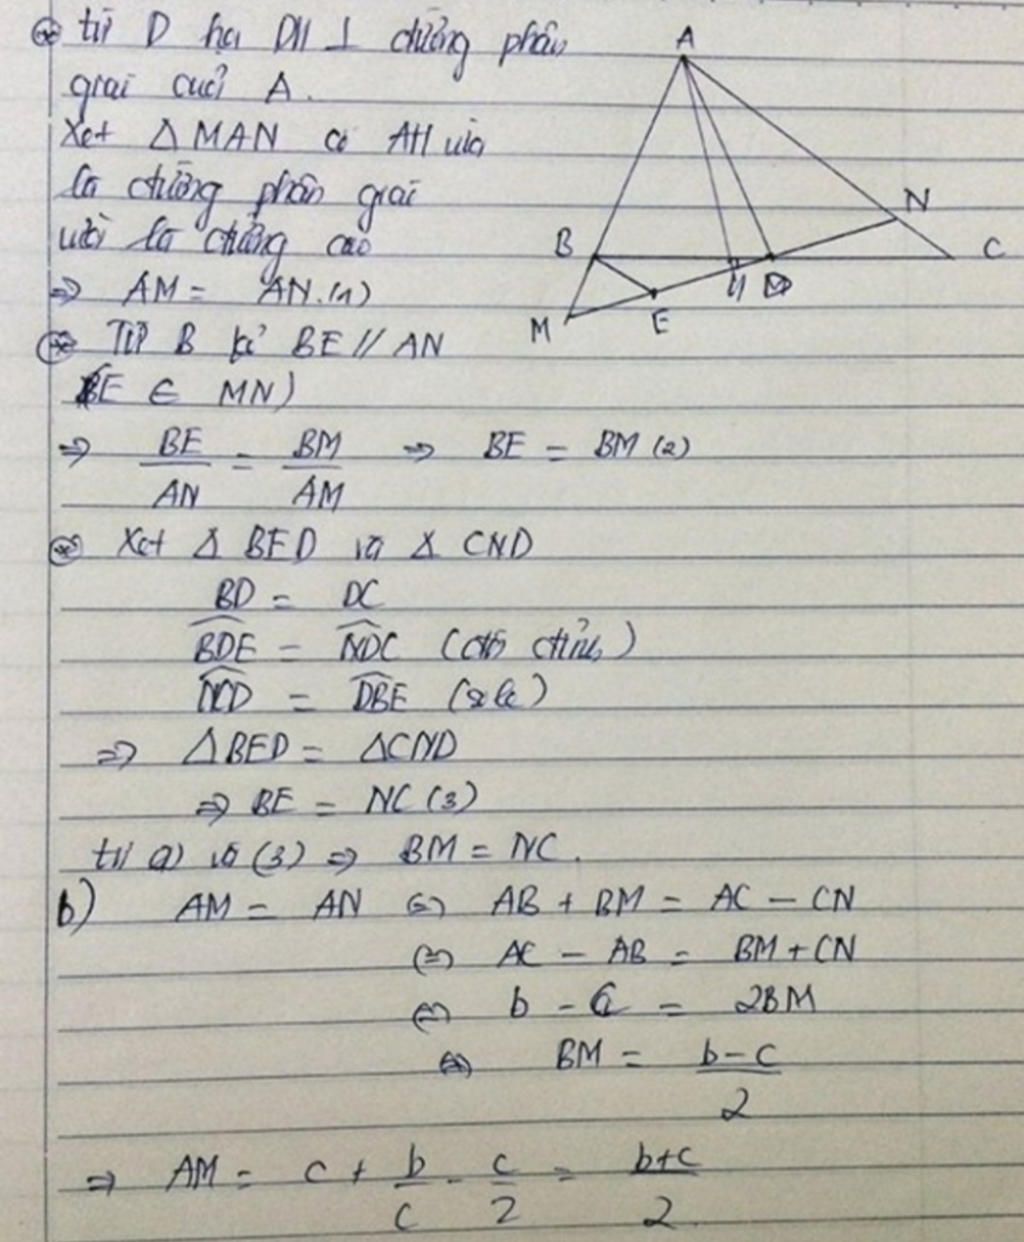 ⊛ từ D hạ DH ⊥ đường phân
giác cuả A.
Xét △MAN có AH vừa
là đường phân giác
vừa là đường cao
⇒ AM = AN.(1)
⊛ Từ B kẻ BE // AN
(E ∈ MN)
⇒ BE/AN = BM/AM ⇒ BE = BM (2)
⊛ Xét △ BED và △ CND
BD = DC
BDE = NDC (đối đỉnh)
NCD = DBE (sole)
⇒ △BED = △CND
⇒ BE = NC (3)
từ 2) và (3) ⇒ BM = NC.
b) AM = AN ⇔ AB + BM = AC - CN
⇔ AC - AB = BM + CN
⇔ b - c = 2BM
⇔ BM = b-c/2
⇒ AM = c + b/c - c/2 = b+c/2
A
B
C
N
M
E
H
D